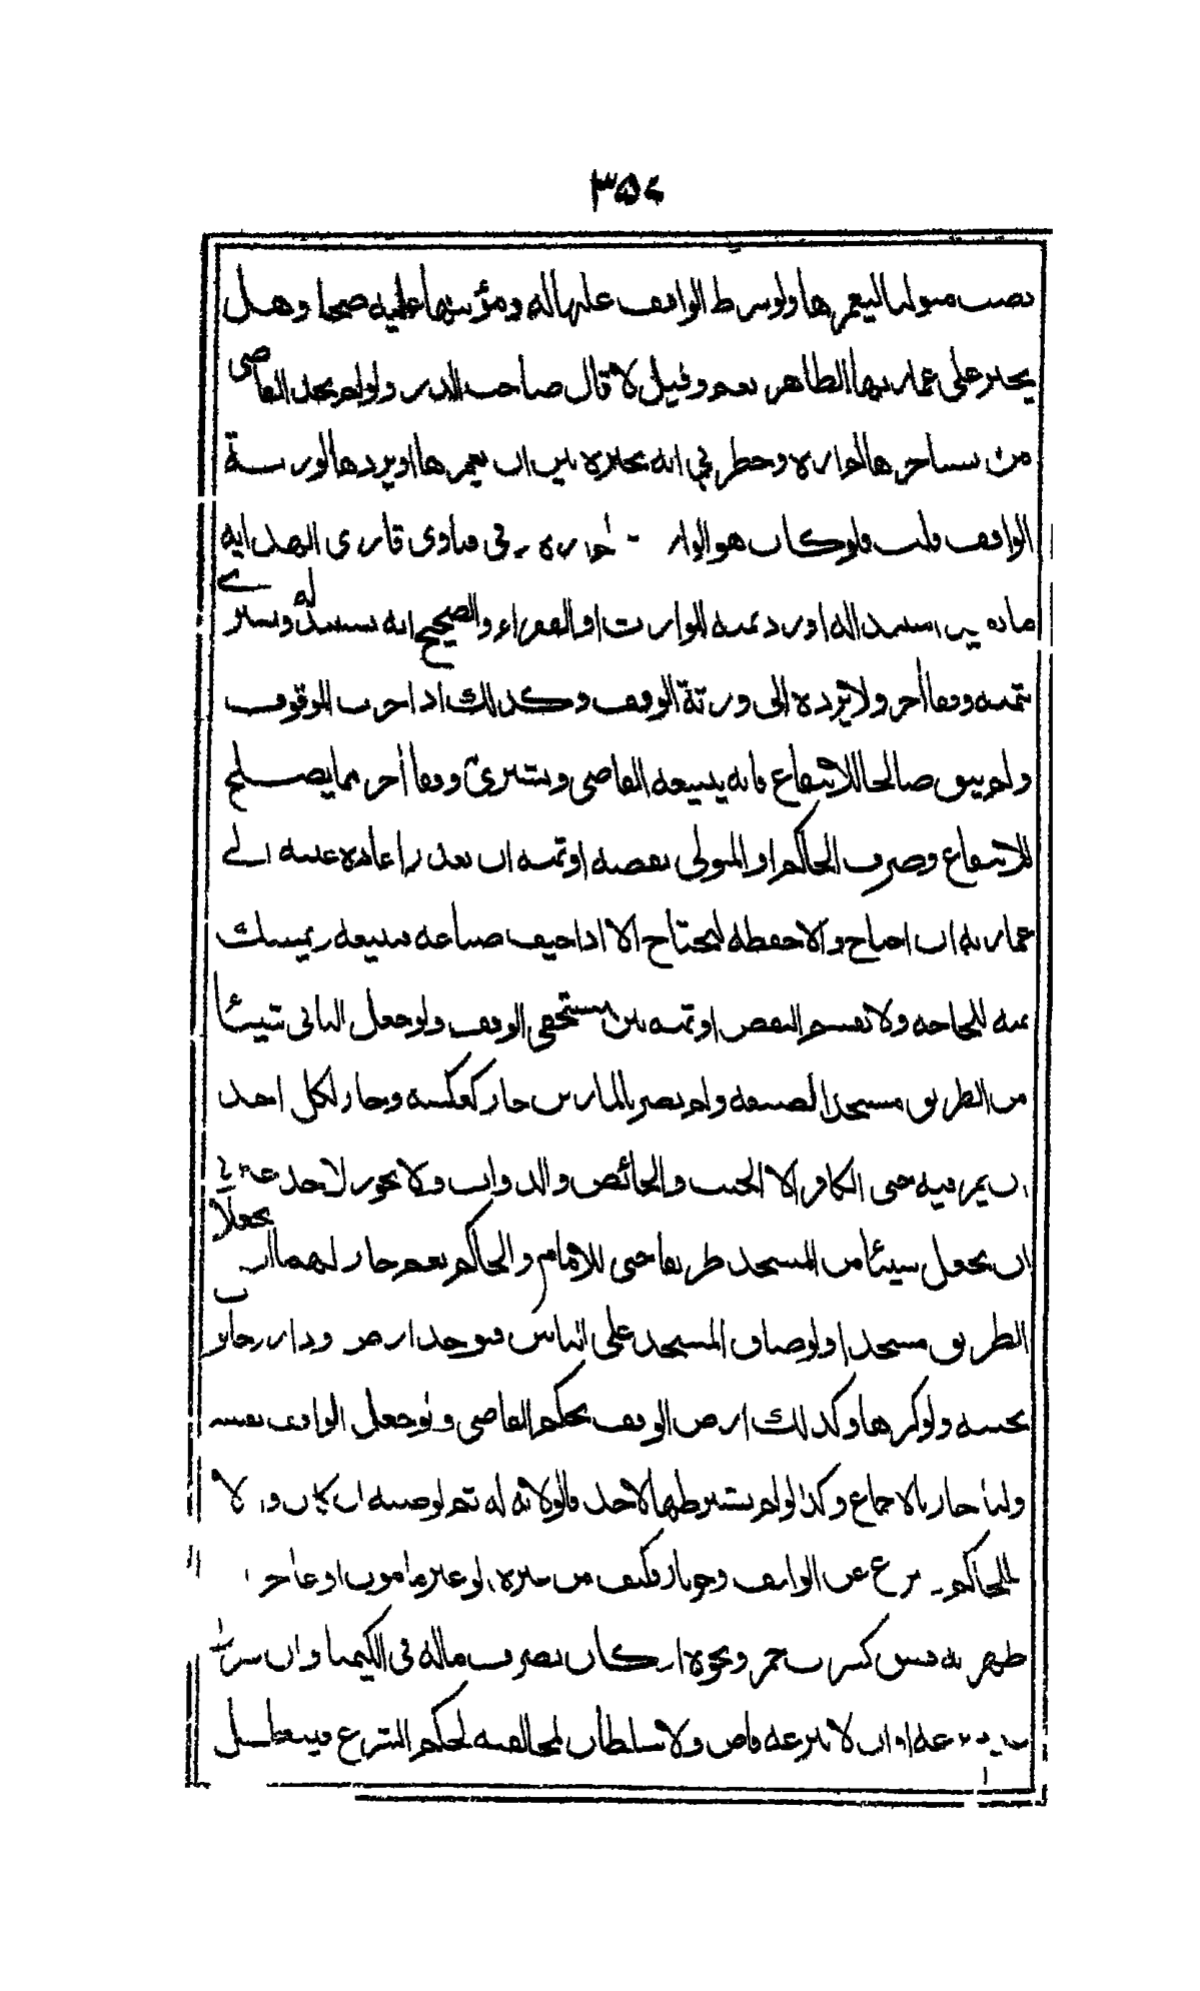 ٣٥٤
نصب متوليا ليعمرها ولو شرط الواقف غلتها له ومؤنتها عليه صحا وهل
يجبر على عمارتها الظاهر نعم وقيل لا قال صاحب الدر ولو لم يجد القاضى
من يستاجرها لم اره وخطر لي انه يخيره بين ان يعمرها او يردها لورثة
الواقف قلت فلو كان هو الوارث لم اره وفى فتاوى قارى الهداية
ما يفيد استبداله او رد ثمنه للوارث او الفقراء والصحيح انه يستبدله ويشترى
بثمنه وقفا آخر ولا يرده الى ورثة الوقف وكذلك اذا خرب الموقوف
ولم يبق صالحا للانتفاع فانه يبيعه القاضى ويشترى وقفا آخر مما يصلح
للانتفاع وصرف الحاكم او المتولى نقضه او ثمنه ان تعذر اعادة عينه الى
عمارته ان احتاج والا حفظه ليحتاج الا اذا خيف ضياعه فيبيعه ويمسك
ثمنه للحاجة ولا تقسم النقض او ثمنه بين مستحقى الوقف ولو جعل البانى شيئا
من الطريق مسجدا لضيقه ولم يضر بالمارين جاز كعكسه وجاز لكل احد
ان يمر فيه حتى الكافر الا الجنب والحائض والدواب ولا يجوز لاحد
ان يجعل شيئا من المسجد طريقا حتى للامام والحاكم نعم جاز لهما ان يجعلا
الطريق مسجدا ولو ضاق المسجد على الناس فتوخذ ارض ودار وحانوت
بجنبه ولو كرها وكذلك ارض الوقف بحكم القاضى ولو جعل الواقف نفسه
وليا جاز بالاجماع وكذا لو لم يشترطها لاحد فالولاية له ثم لوصيه ان كان والا
للحاكم وينزع عن الواقف وجوبا فكيف من غيره لو غير مامون او عاجزا
ظهر به فسق كشرب خمر ونحوه او كان يصرف ماله فى الكيميا وان شرط
عدم نزعه او ان لا ينزعه قاض ولا سلطان لمخالفته لحكم الشرع فيبطل